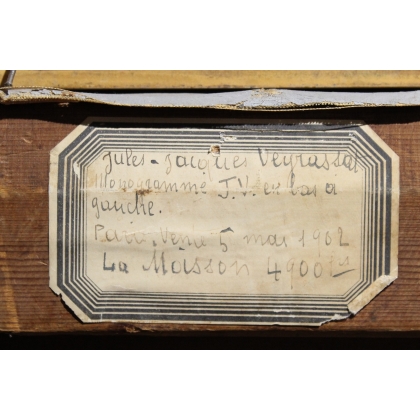 Jules-Jacques Veyrassat
Monogramme J.V. en bas à
gauche.
Paris. Vente 5 mai 1902
La Moisson 4900